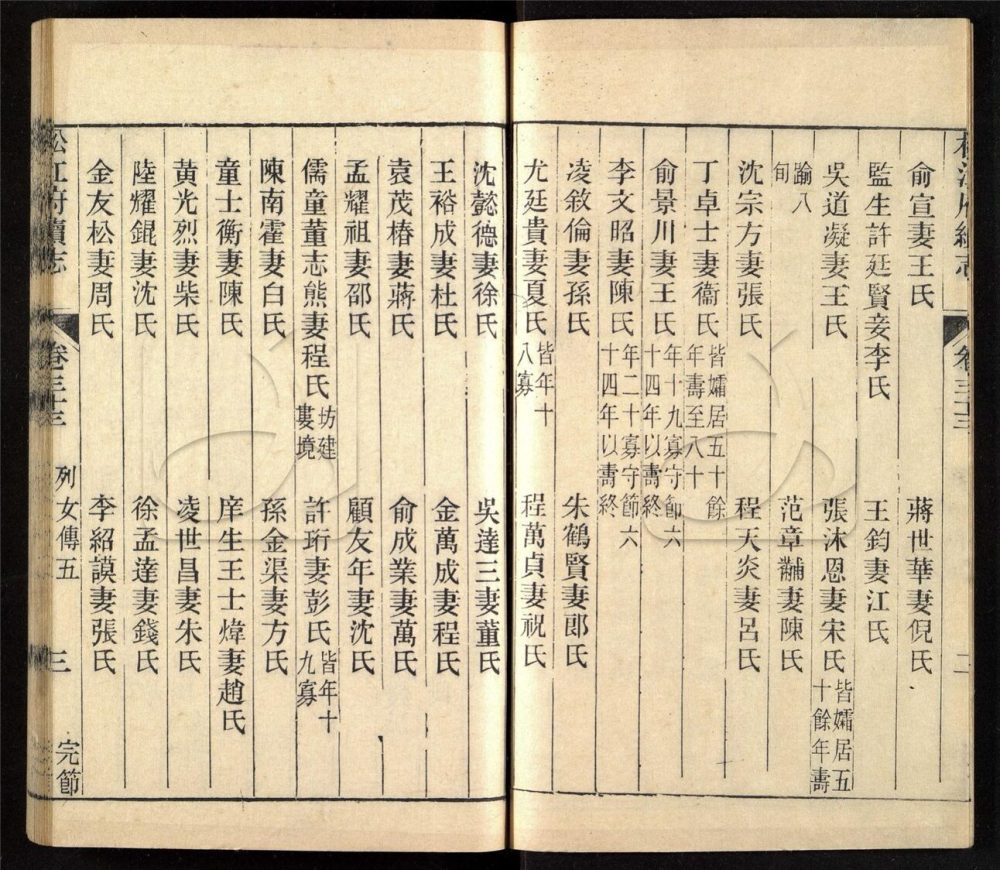 松江府續志 卷三十三 二
俞宣妻王氏 蔣世華妻倪氏
監生許廷賢妾李氏 王鈞妻江氏
吳道凝妻王氏 張沐恩妻宋氏 皆孀居五十餘年壽
踰八旬 范章黼妻陳氏
沈宗方妻張氏 程天炎妻呂氏
丁卓士妻衞氏 皆孀居五十餘年壽至八十
俞景川妻王氏 年十九寡守節六十四年以壽終
李文昭妻陳氏 年二十寡守節六十四年以壽終
凌敘倫妻孫氏 朱鶴賢妻郞氏
尤廷貴妻夏氏 皆年十八寡 程萬貞妻祝氏
沈懿德妻徐氏 吳達三妻董氏
王裕成妻杜氏 金萬成妻程氏
袁茂椿妻蔣氏 俞成業妻萬氏
孟耀祖妻邵氏 顧友年妻沈氏
儒童董志熊妻程氏 坊建婁境 許珩妻彭氏 皆年十九寡
陳南霍妻白氏 孫金渠妻方氏
童士衡妻陳氏 庠生王士煒妻趙氏
黃光烈妻柴氏 凌世昌妻朱氏
陸耀錕妻沈氏 徐孟達妻錢氏
金友松妻周氏 李紹謨妻張氏
松江府續志 卷三十三 列女傳五 三 完節